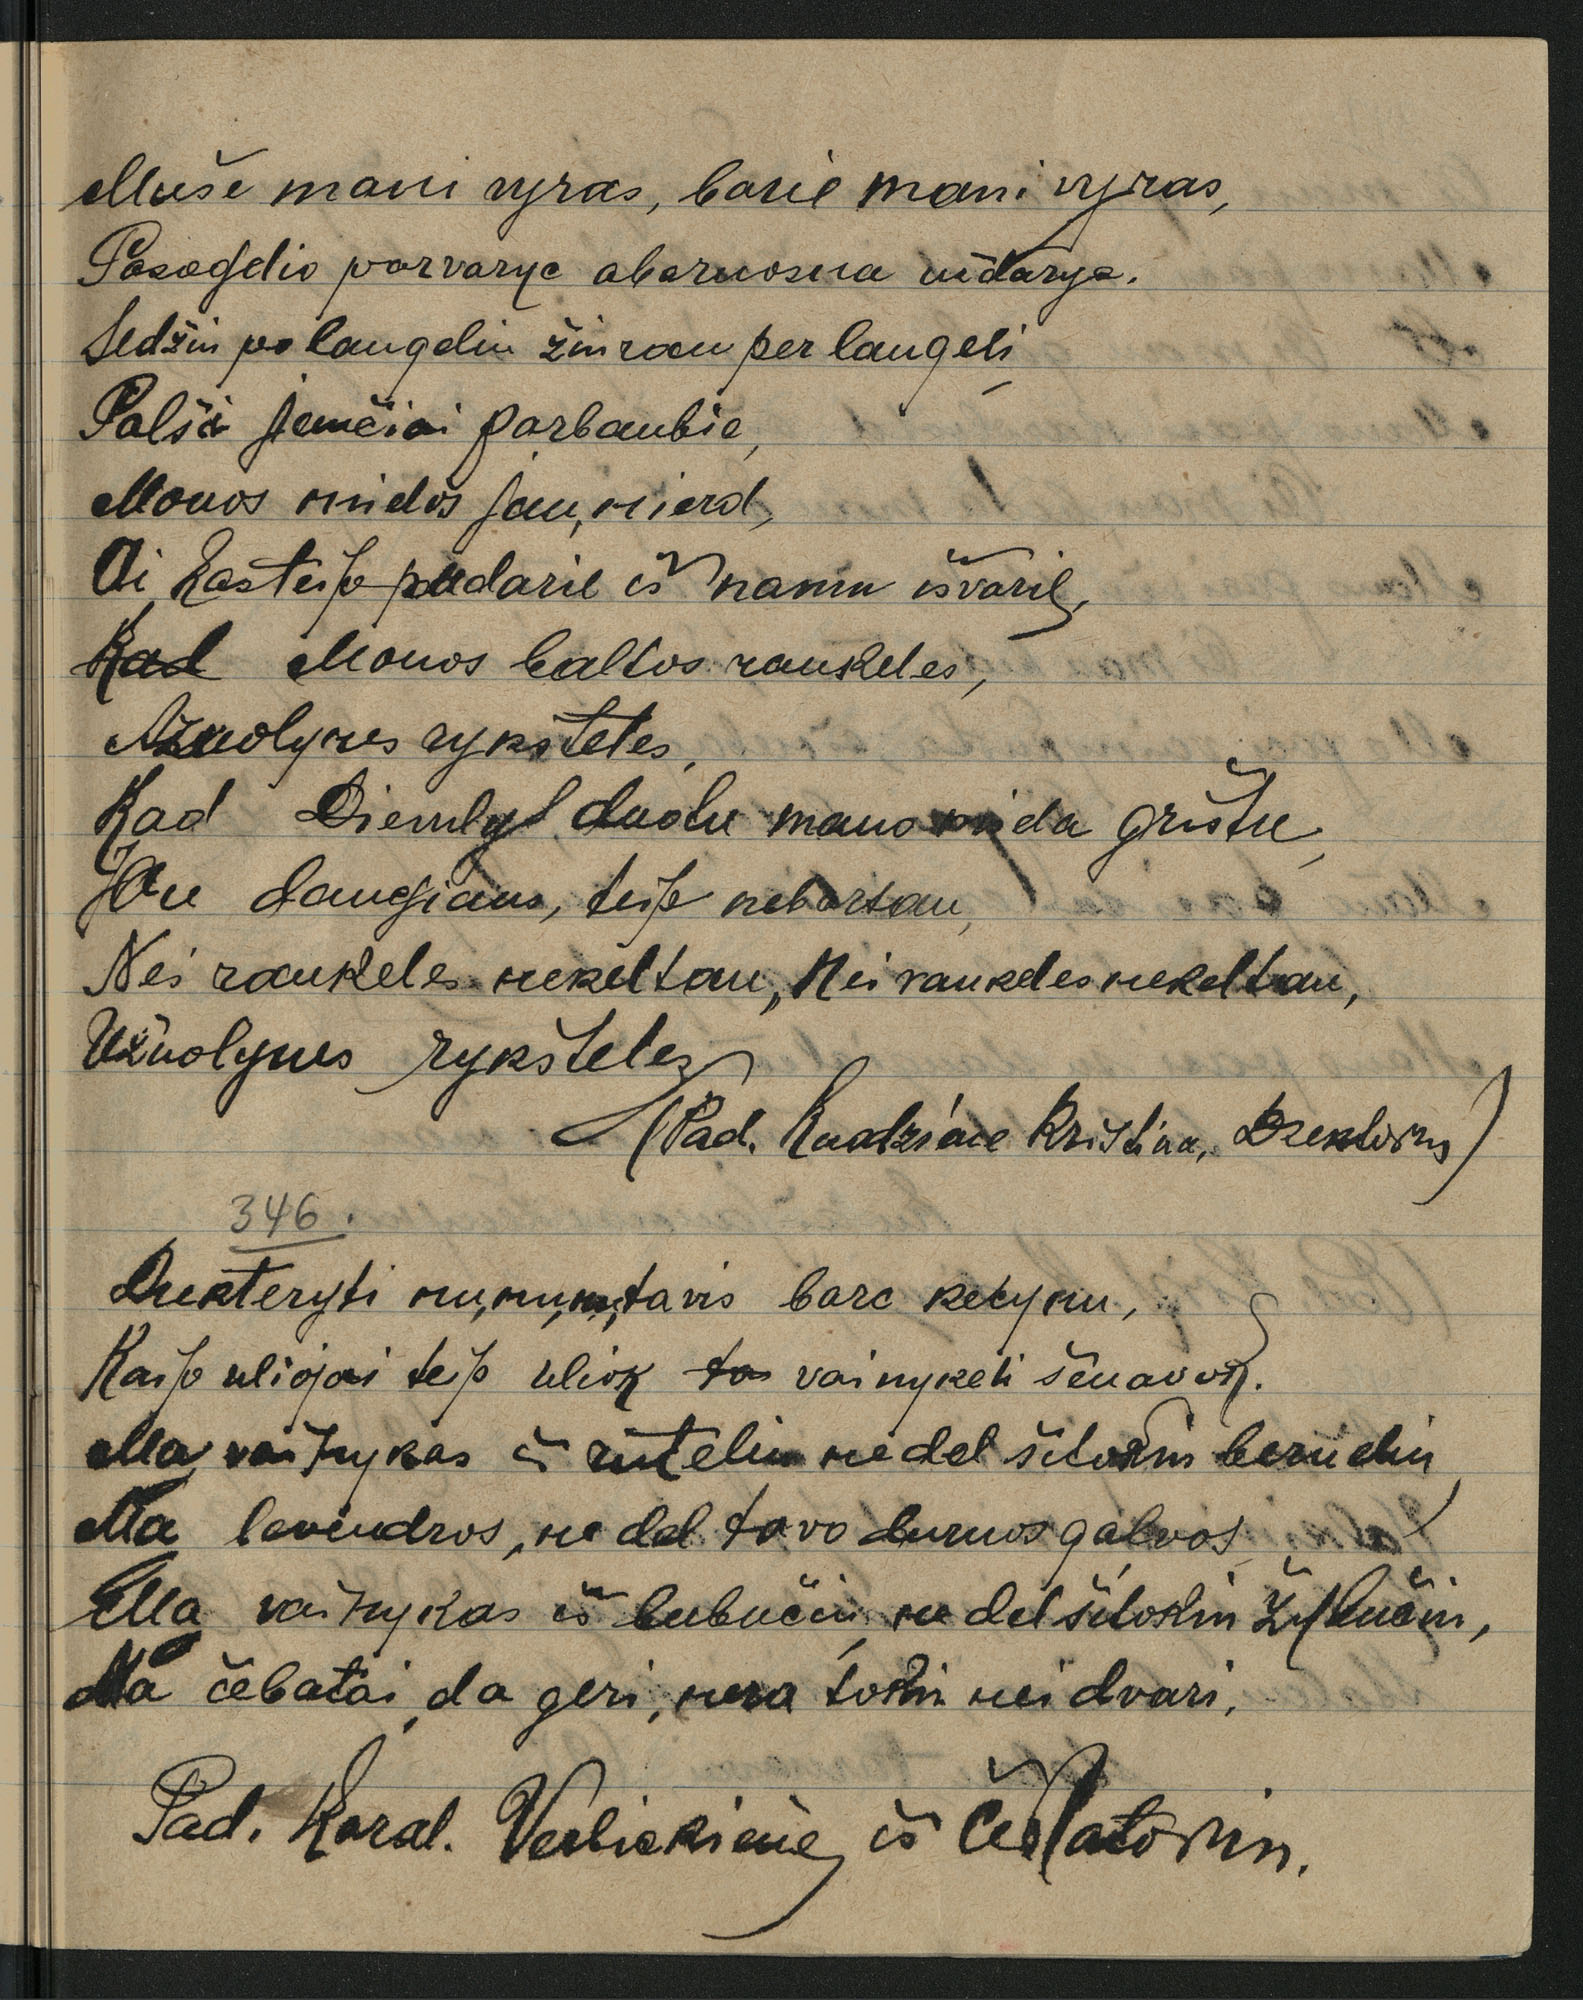 Muše mani vyras, barie mani vyras,
Pasogelio parvaryc abarnosna uždarya.
Sedžiu po langeliu žiurau per langeli
Palši jaučiai parbaubie,
Monos mielos jau nierd,
Oi kasteip padarie iš namu išvarie,
Kad Monos baltos rankeles,
Ažuolynes rykšteles,
Kad Dievulyt duotu mano miela grištu,
Jau daugiaus, teip nebartau,
Nei rankeles nekeltau, Nei rankeles nekeltau,
Užuolynes rykšteles
(Pad. Kudziene Kristina,
346.
Dukteryti nu, nu, nu, tavis barc ketynu,
Kaip uliojai teip uliok ta vainykeli šenavok.
Ma vainykas iš rūteliu ne del šitokiu berneliu
Ma levendros, ne del tavo durnos galvos
Ma vainykas iš bubučiu, ne del šitokiu žylučiu,
Ma čebatai da geri, nera tokiu nei dvari,
Pad. Karal. Verbickienė iš